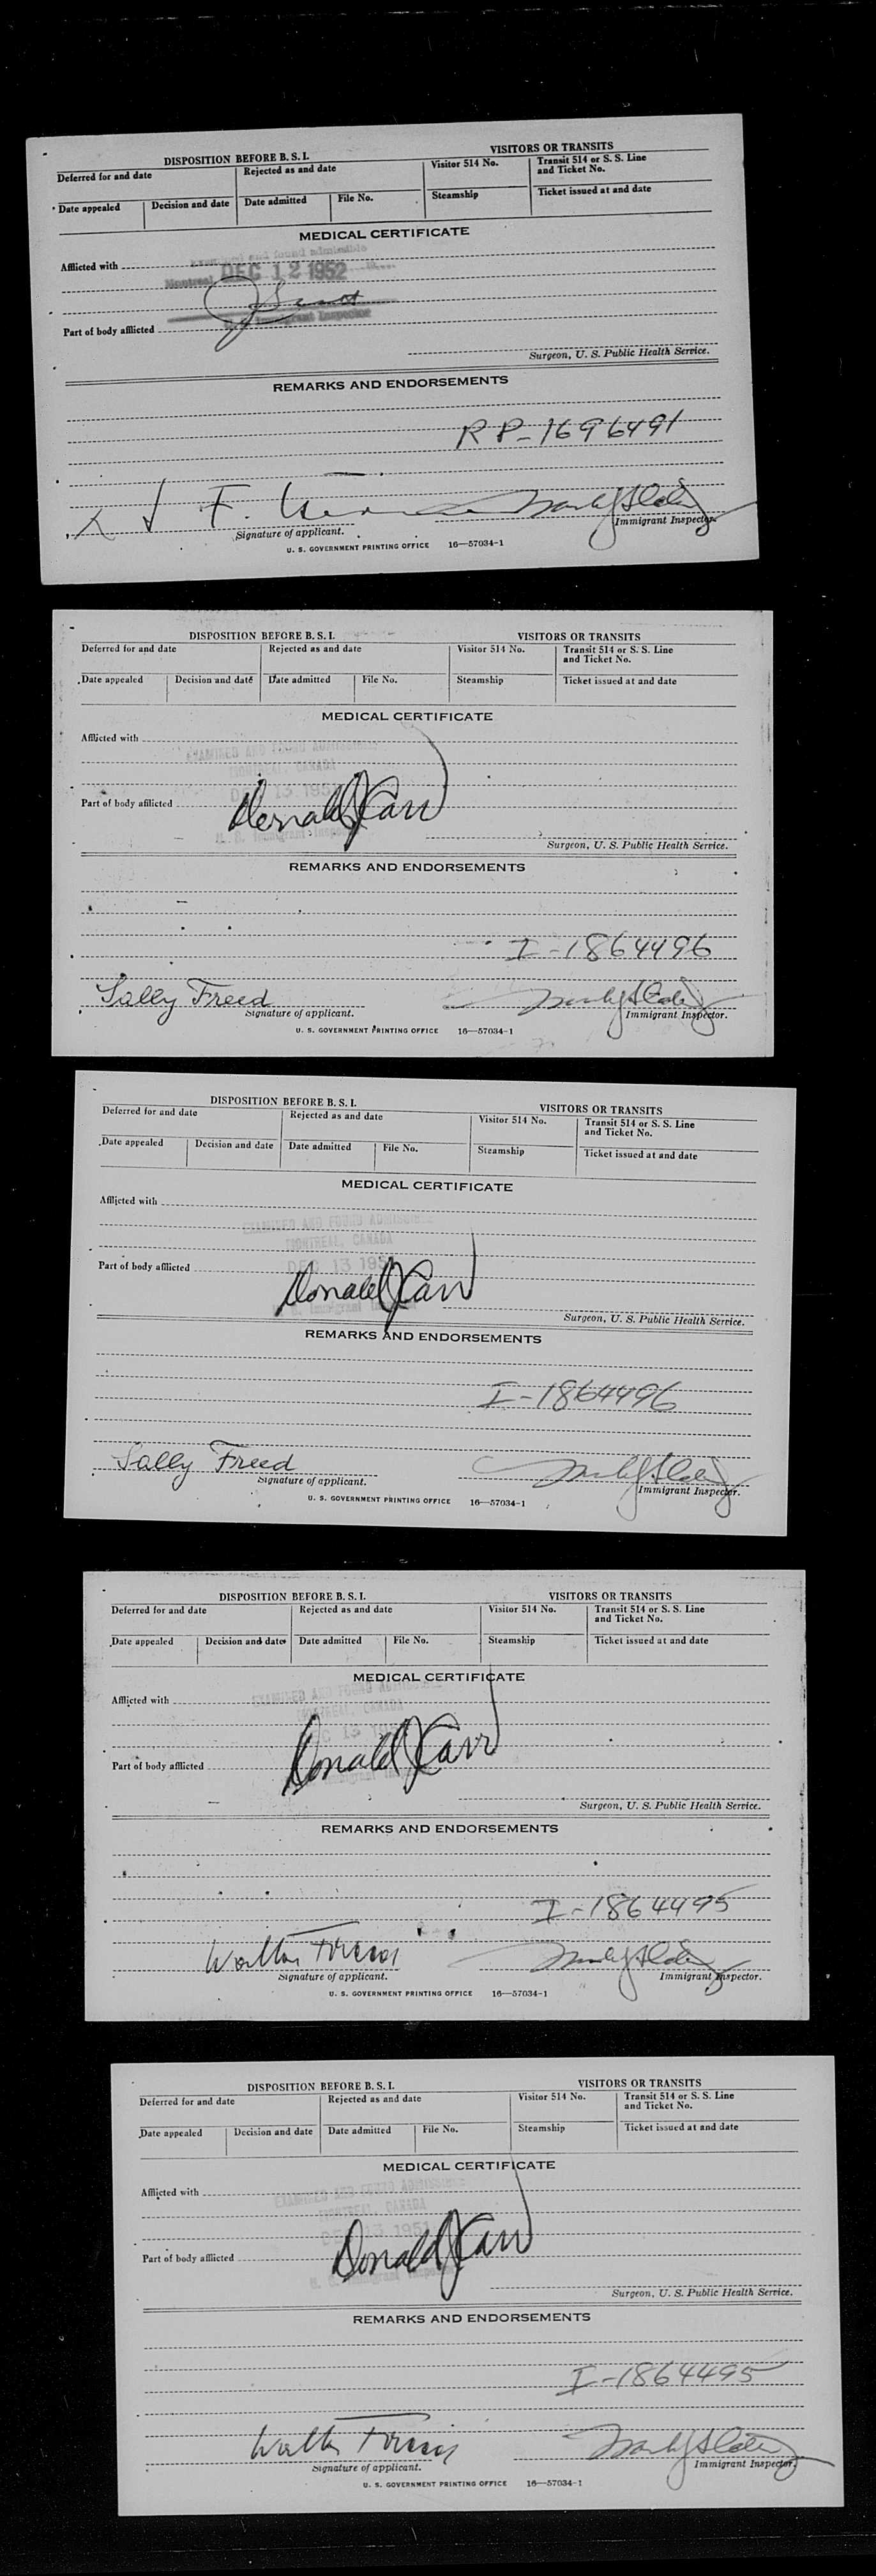 DISPOSITION BEFORE B. S. I. VISITORS OR TRANSITS
Deferred for and date Rejected as and date Visitor 514 No. Transit 514 or S. S. Line and Ticket No.
Date appealed Decision and date Date admitted File No. Steamship Ticket issued at and date
MEDICAL CERTIFICATE
Examined and found admissible
Afflicted with
Montreal DEC 12 1952
Immigrant Inspector
Part of body afflicted
Surgeon, U. S. Public Health Service.
REMARKS AND ENDORSEMENTS
RP-1696491
X J F.
Signature of applicant. Immigrant Inspector.
U. S. GOVERNMENT PRINTING OFFICE 16—57034-1
DISPOSITION BEFORE B. S. I. VISITORS OR TRANSITS
Deferred for and date Rejected as and date Visitor 514 No. Transit 514 or S. S. Line and Ticket No.
Date appealed Decision and date Date admitted File No. Steamship Ticket issued at and date
MEDICAL CERTIFICATE
Afflicted with
EXAMINED AND FOUND ADMISSIBLE
MONTREAL, CANADA
DEC 13 1951
Part of body afflicted Donald J Carr
U. S. Immigrant Inspector
Surgeon, U. S. Public Health Service.
REMARKS AND ENDORSEMENTS
I-1864496
Sally Freed
Signature of applicant. Immigrant Inspector.
U. S. GOVERNMENT PRINTING OFFICE 16—57034-1
DISPOSITION BEFORE B. S. I. VISITORS OR TRANSITS
Deferred for and date Rejected as and date Visitor 514 No. Transit 514 or S. S. Line and Ticket No.
Date appealed Decision and date Date admitted File No. Steamship Ticket issued at and date
MEDICAL CERTIFICATE
Afflicted with
EXAMINED AND FOUND ADMISSIBLE
MONTREAL, CANADA
DEC 13 1951
Part of body afflicted Donald J Carr
U. S. Immigrant Inspector
Surgeon, U. S. Public Health Service.
REMARKS AND ENDORSEMENTS
I-1864496
Sally Freed
Signature of applicant. Immigrant Inspector.
U. S. GOVERNMENT PRINTING OFFICE 16—57034-1
DISPOSITION BEFORE B. S. I. VISITORS OR TRANSITS
Deferred for and date Rejected as and date Visitor 514 No. Transit 514 or S. S. Line and Ticket No.
Date appealed Decision and date Date admitted File No. Steamship Ticket issued at and date
MEDICAL CERTIFICATE
Afflicted with
EXAMINED AND FOUND ADMISSIBLE
MONTREAL, CANADA
DEC 13
Part of body afflicted Donald J Carr
Surgeon, U. S. Public Health Service.
REMARKS AND ENDORSEMENTS
I-1864495
Walter
Signature of applicant. Immigrant Inspector.
U. S. GOVERNMENT PRINTING OFFICE 16—57034-1
DISPOSITION BEFORE B. S. I. VISITORS OR TRANSITS
Deferred for and date Rejected as and date Visitor 514 No. Transit 514 or S. S. Line and Ticket No.
Date appealed Decision and date Date admitted File No. Steamship Ticket issued at and date
MEDICAL CERTIFICATE
Afflicted with
EXAMINED AND FOUND ADMISSIBLE
MONTREAL, CANADA
DEC 13 1951
Part of body afflicted Donald J Carr
U. S. Immigrant Inspector
Surgeon, U. S. Public Health Service.
REMARKS AND ENDORSEMENTS
I-1864495
Walter
Signature of applicant. Immigrant Inspector.
U. S. GOVERNMENT PRINTING OFFICE 16—57034-1